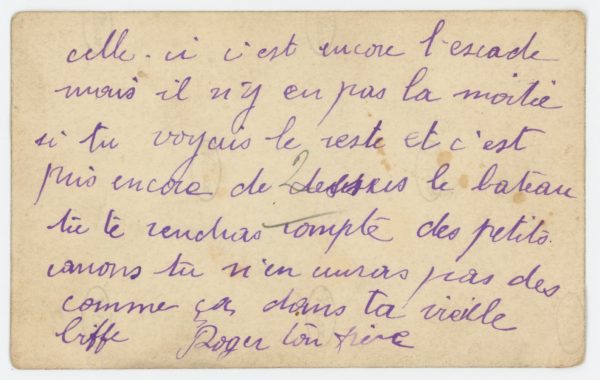 celle-ci c'est encore l'escade
mais il n'y en pas la moitié
si tu voyais le reste et c'est
pris encore de dessus le bateau
2
tu te rendras compte des petits
canons tu n'en auras pas des
comme ça dans ta vieille
biffe Roger ton frère